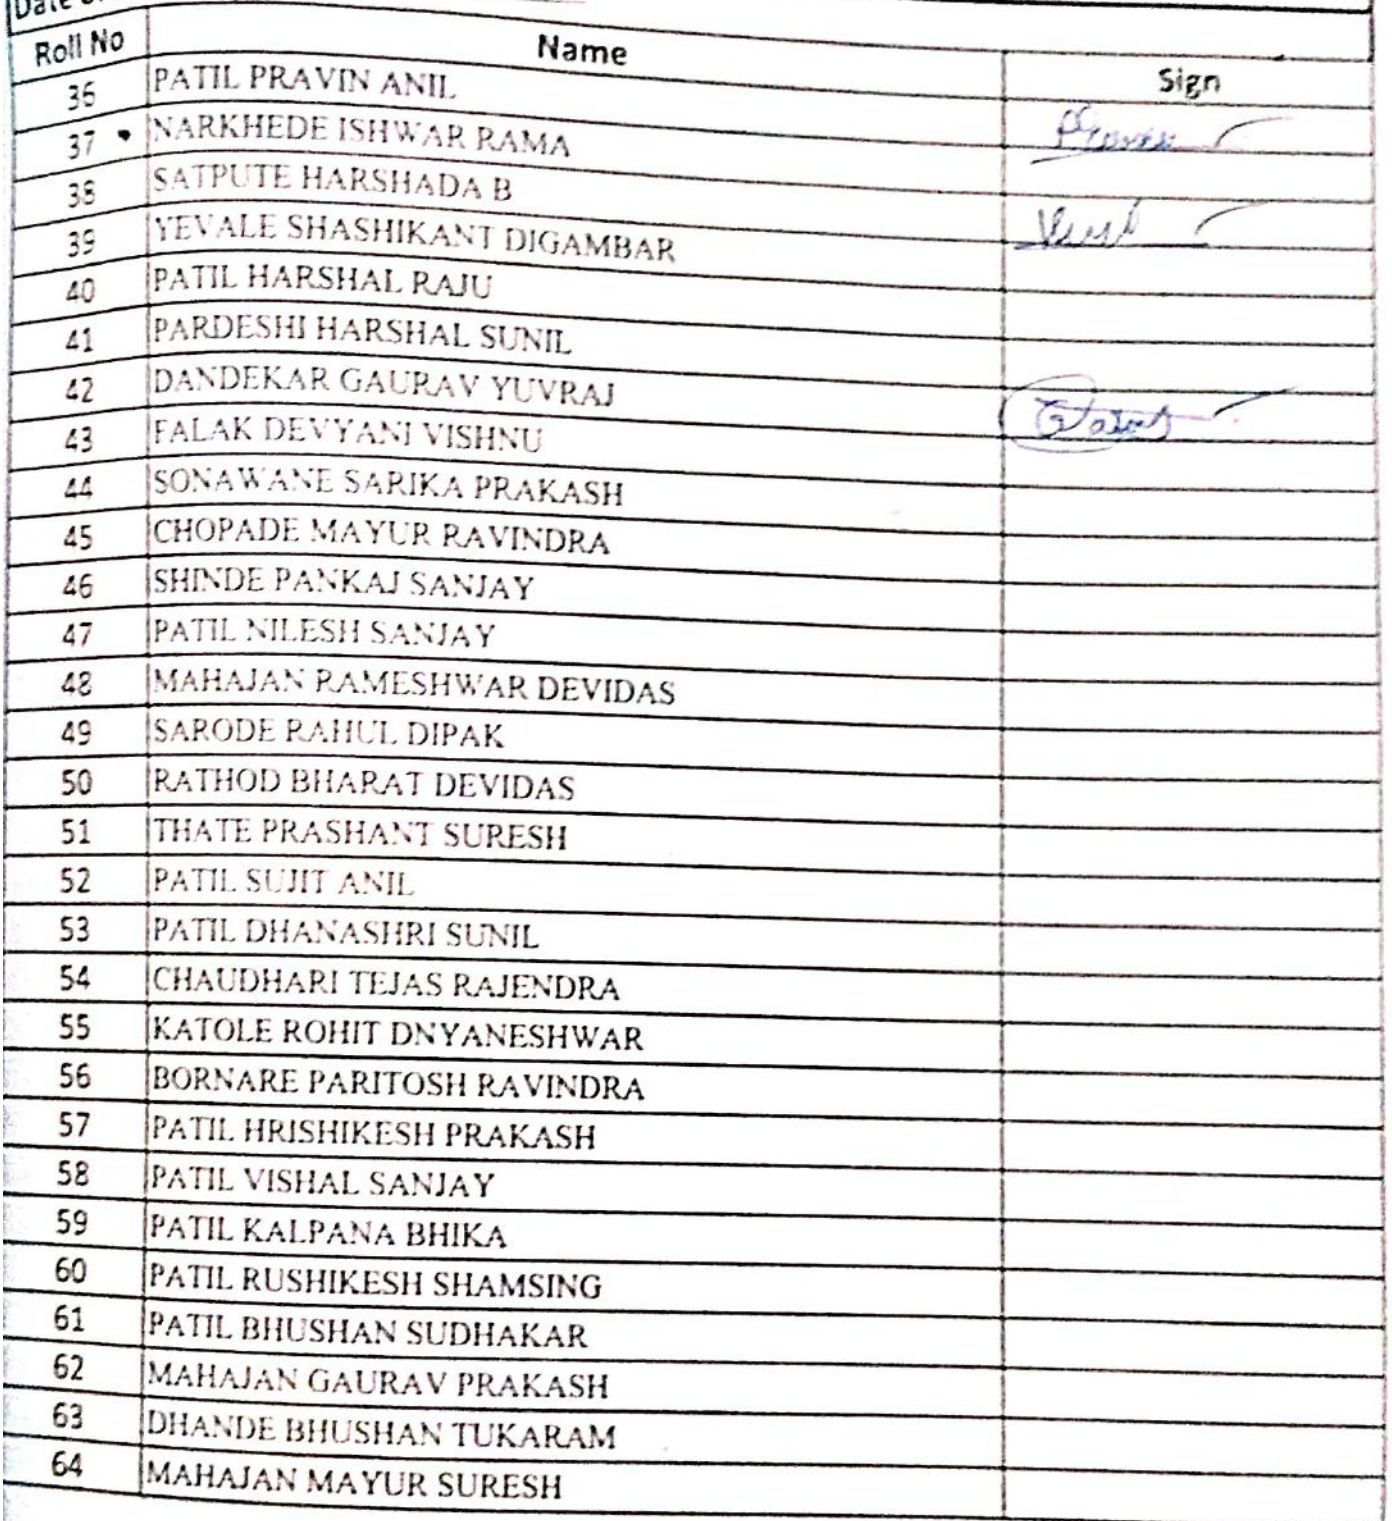 Date
Roll No Name Sign
36 PATIL PRAVIN ANIL
37 NARKHEDE ISHWAR RAMA
38 SATPUTE HARSHADA B
39 YEVALE SHASHIKANT DIGAMBAR
40 PATIL HARSHAL RAJU
41 PARDESHI HARSHAL SUNIL
42 DANDEKAR GAURAV YUVRAJ
43 FALAK DEVYANI VISHNU
44 SONAWANE SARIKA PRAKASH
45 CHOPADE MAYUR RAVINDRA
46 SHINDE PANKAJ SANJAY
47 PATIL NILESH SANJAY
48 MAHAJAN RAMESHWAR DEVIDAS
49 SARODE RAHUL DIPAK
50 RATHOD BHARAT DEVIDAS
51 THATE PRASHANT SURESH
52 PATIL SUJIT ANIL
53 PATIL DHANASHRI SUNIL
54 CHAUDHARI TEJAS RAJENDRA
55 KATOLE ROHIT DNYANESHWAR
56 BORNARE PARITOSH RAVINDRA
57 PATIL HRISHIKESH PRAKASH
58 PATIL VISHAL SANJAY
59 PATIL KALPANA BHIKA
60 PATIL RUSHIKESH SHAMSING
61 PATIL BHUSHAN SUDHAKAR
62 MAHAJAN GAURAV PRAKASH
63 DHANDE BHUSHAN TUKARAM
64 MAHAJAN MAYUR SURESH